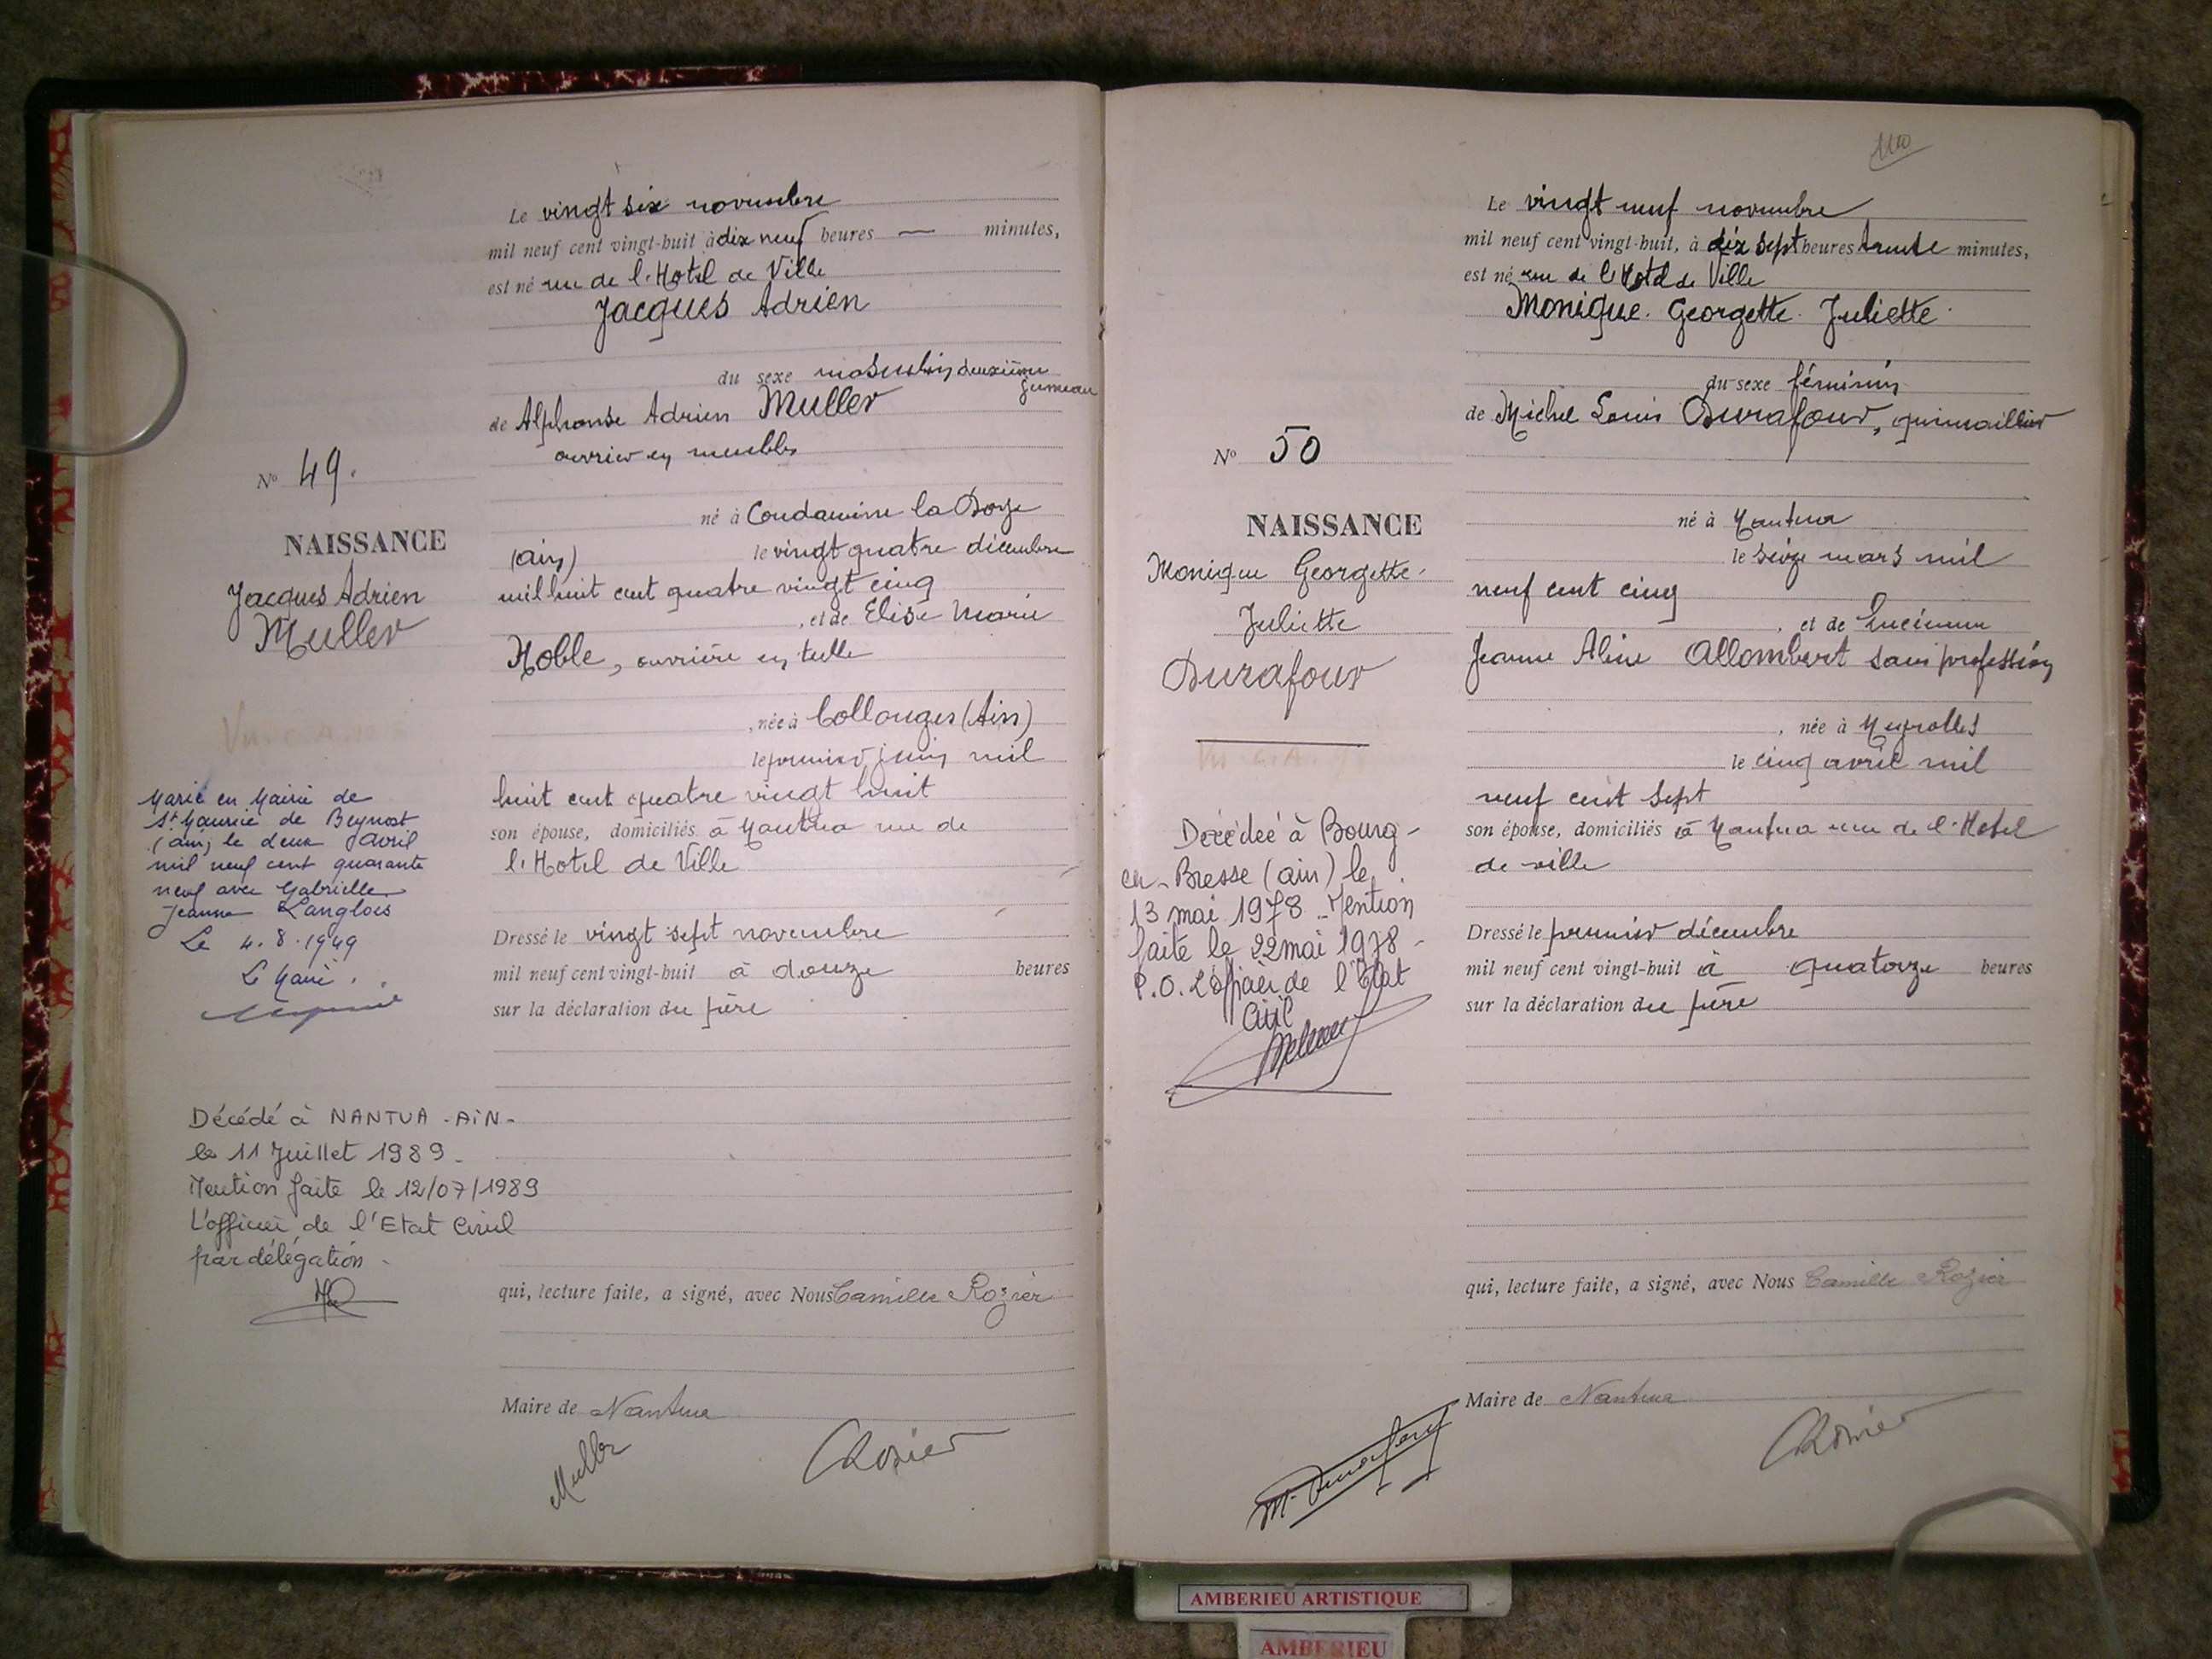 Le vingt six novembre
mil neuf cent vingt-huit à dix neuf heures — minutes,
est né rue de l'Hotel de Ville
Jacques Adrien
du sexe masculin deuxième
jumeau
de Alphonse Adrien Muller
ouvrier en meubles
né à Condamine la Doye
(ain) le vingt quatre décembre
mil huit cent quatre vingt cinq
, et de Elise Marie
Noble, ouvrière en tulle
, née à Collonges (Ain)
le premier juin mil
huit cent quatre vingt huit
son épouse, domiciliés à Nantua rue de
l'Hotel de Ville
Dressé le vingt sept novembre
mil neuf cent vingt-huit à douze heures
sur la déclaration du père
qui, lecture faite, a signé, avec Nous Camille Rozier
Maire de Nantua
Muller Rozier
N° 49.
NAISSANCE
Jacques Adrien
Muller
Marié en Mairie de
St Maurice de Beynost
(ain) le deux Avril
mil neuf cent quarante
neuf avec Gabrielle
Jeanne Langlois
Le 4.8.1949
Le Maire.
Décédé à NANTUA -AiN-
le 11 Juillet 1989.
Mention faite le 12/07/1989
L'officier de l'Etat Civil
par délégation.
110
Le vingt neuf novembre
mil neuf cent vingt-huit, à dix sept heures trente minutes,
est né rue de l'Hotel de Ville
Monique Georgette Juliette
du sexe féminin
de Michel Louis Durafour, quincaillier
né à Nantua
le seize mars mil
neuf cent cinq
, et de Lucienne
Jeanne Aline Allombert sans profession
, née à Neyrolles
le cinq avril mil
neuf cent sept
son épouse, domiciliés à Nantua rue de l'Hotel
de ville
Dressé le premier décembre
mil neuf cent vingt-huit à quatorze heures
sur la déclaration du père
qui, lecture faite, a signé, avec Nous Camille Rozier
Maire de Nantua
M. Durafour Rozier
N° 50
NAISSANCE
Monique Georgette
Juliette
Durafour
Décédée à Bourg-
en-Bresse (ain) le
13 mai 1978. Mention
faite le 22 mai 1978-
P.O. L'officier de l'Etat
Civil
AMBERIEU ARTISTIQUE
AMBERIEU